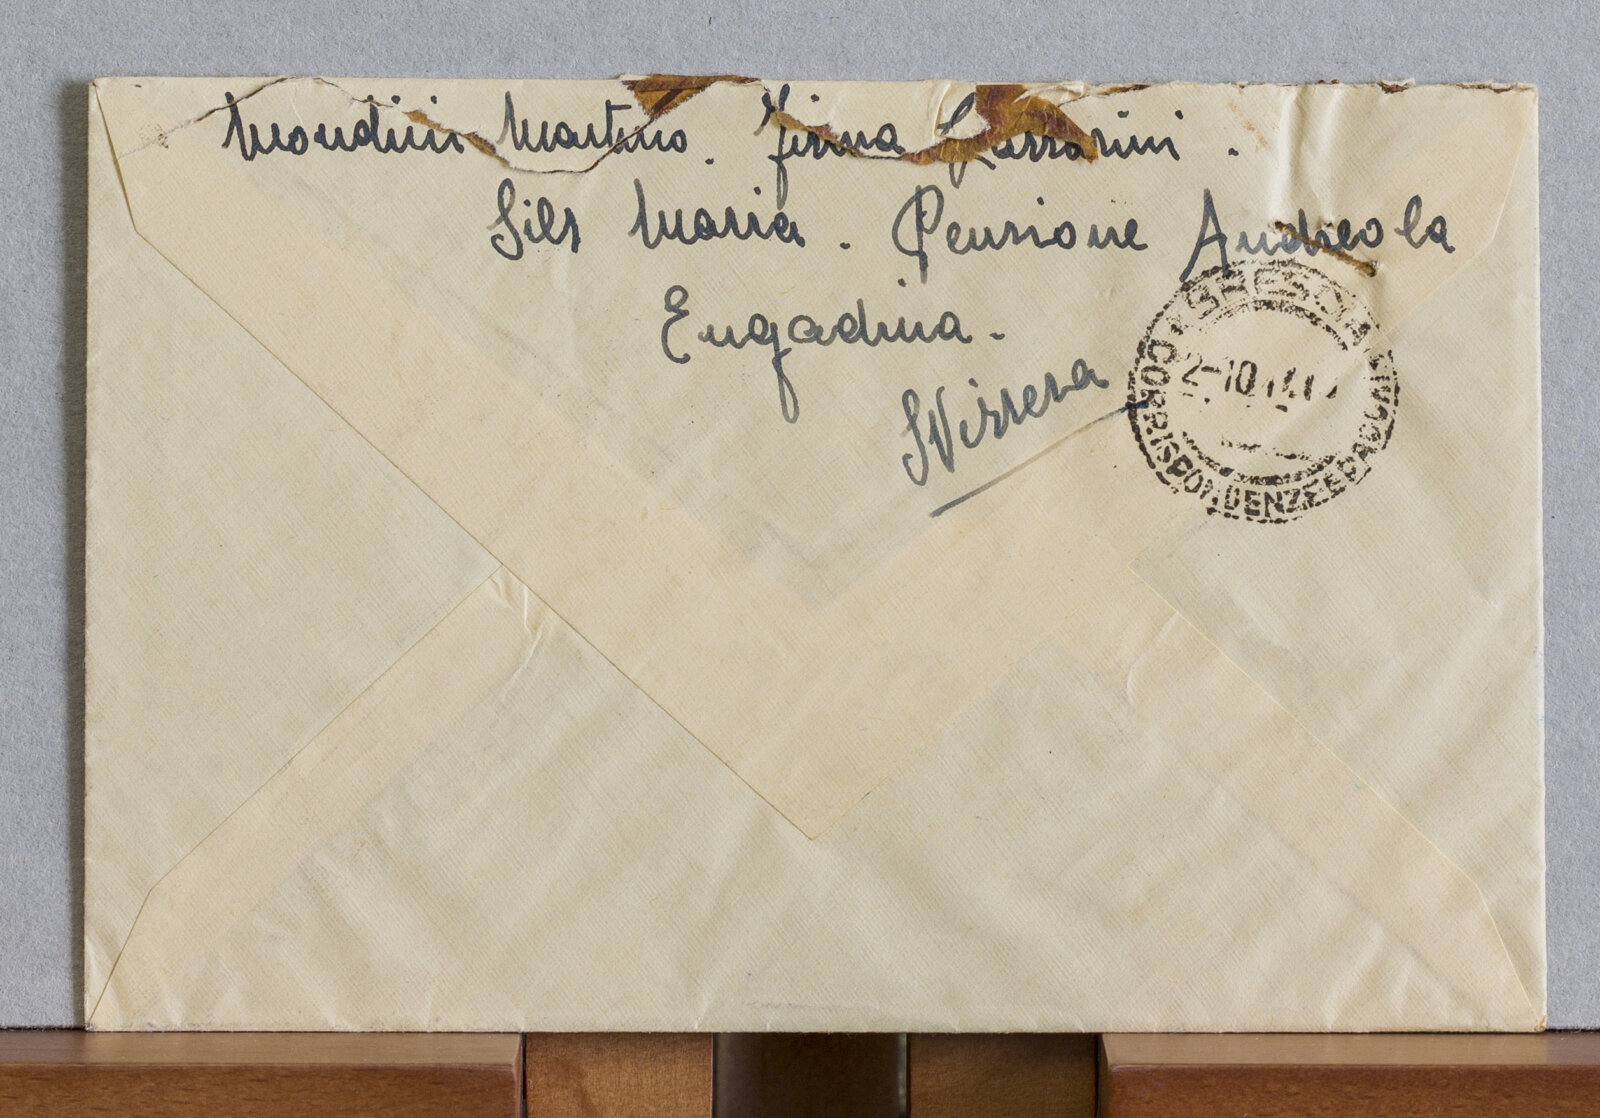 Mondini Martino. Firma Lazzarini.
Sils Maria. Pensione Andreola
Engadina.
Svizzera
BRESCIA
2-10
CORRISPONDENZE E PACCHI